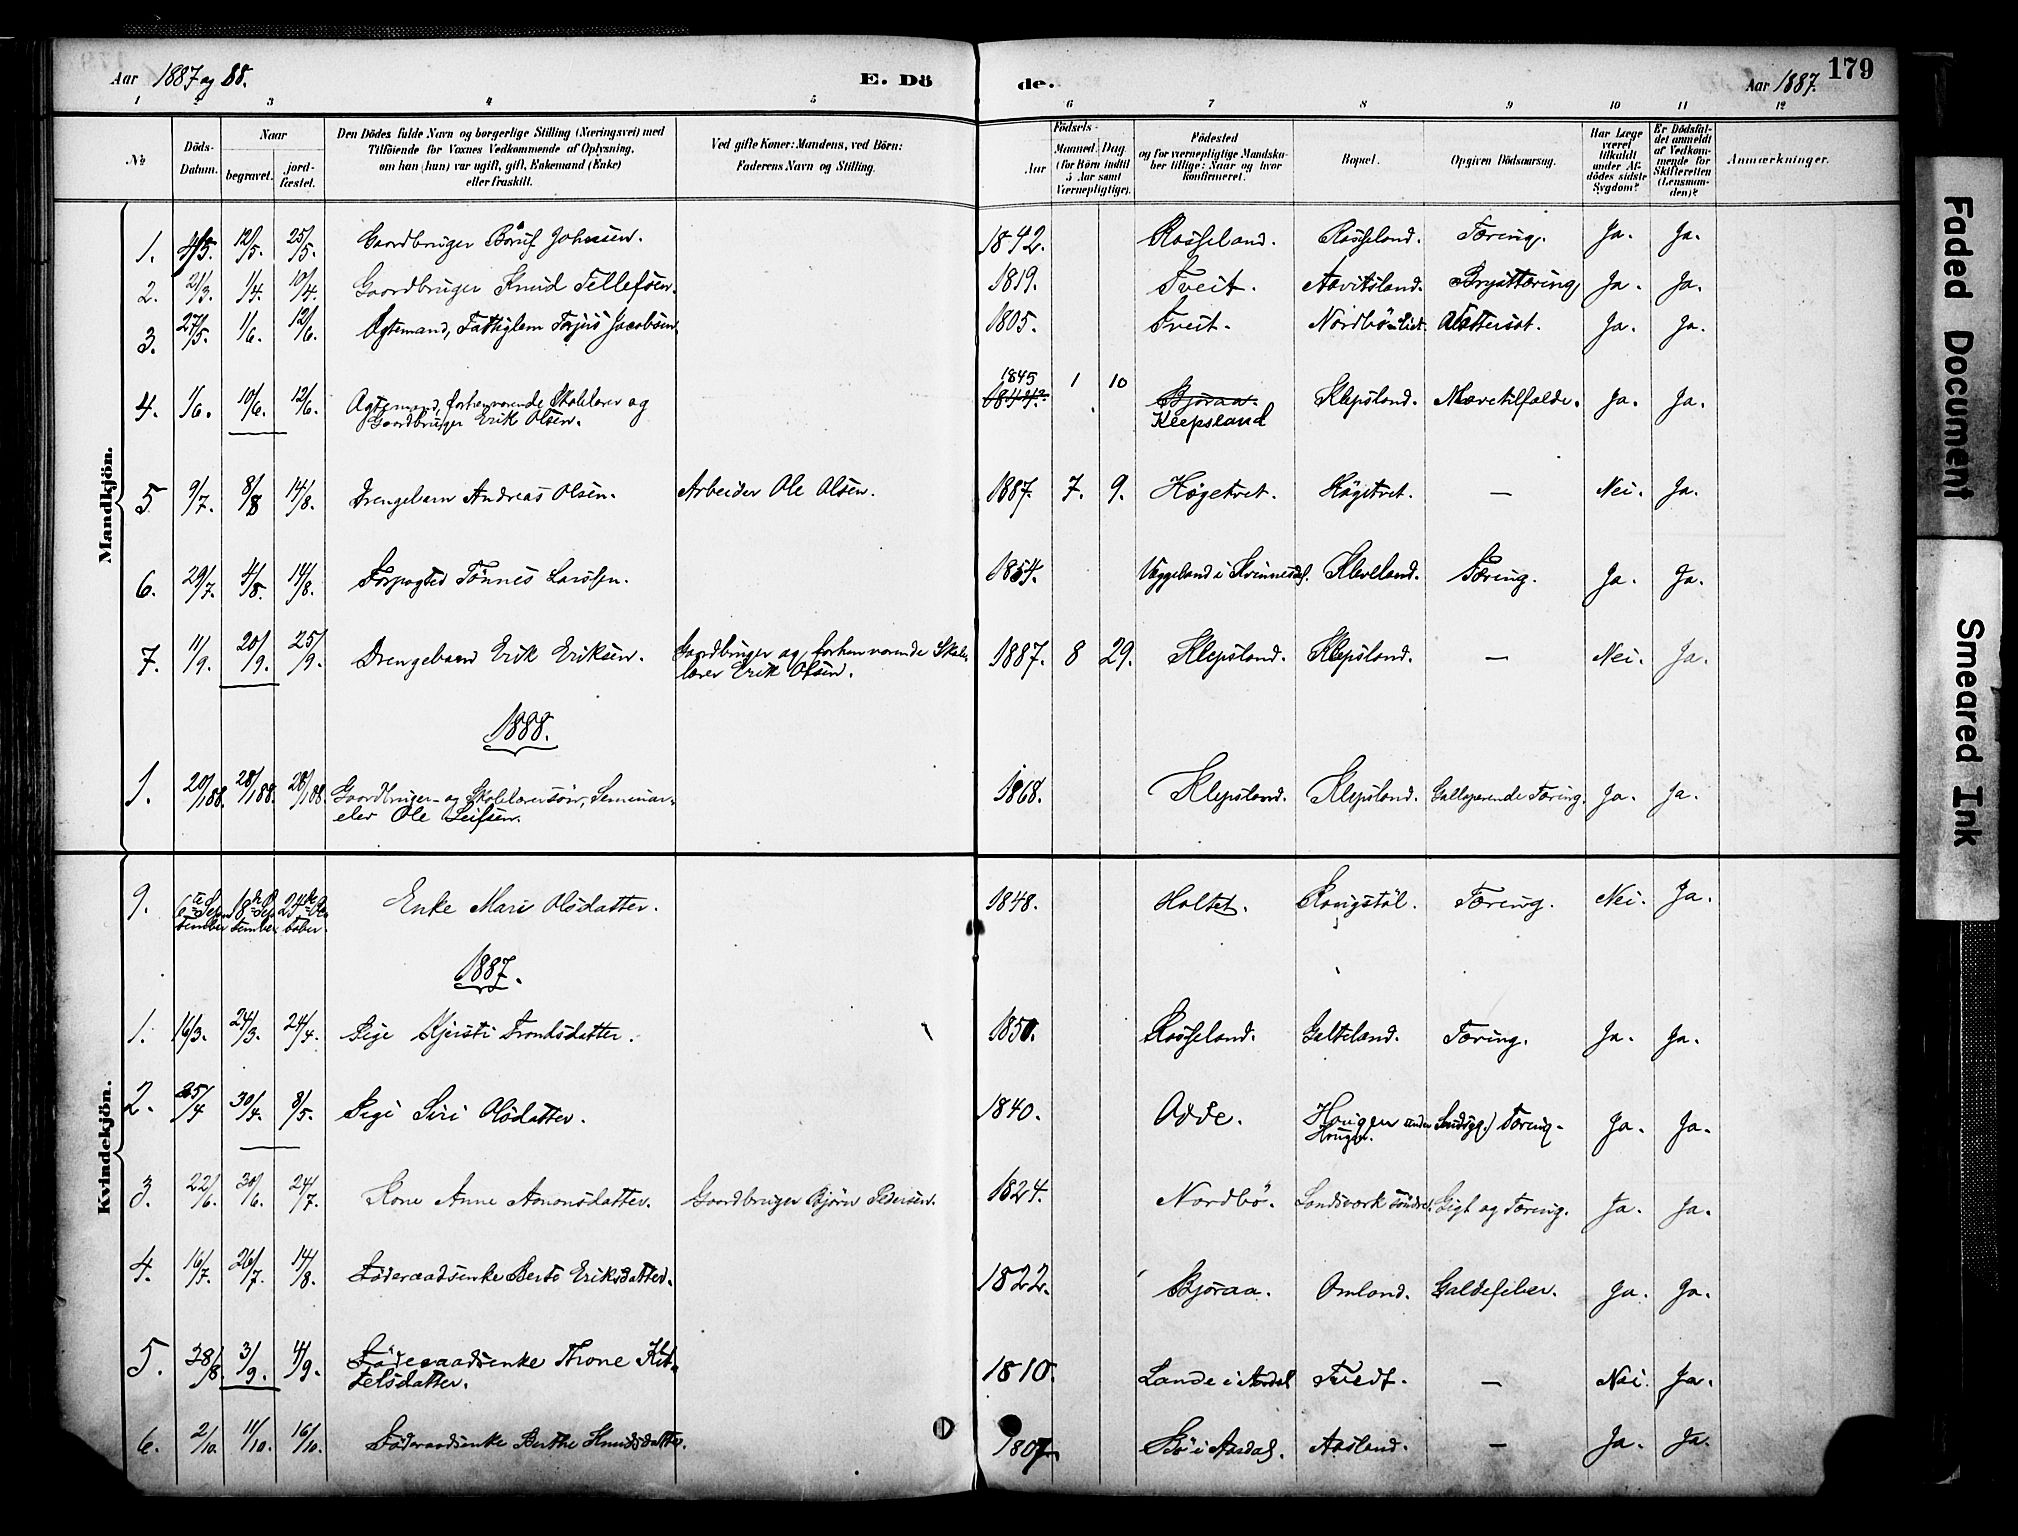 Aar 1887 og 88.
E. Dö
de.
Aar 1887.
179
1 2 3 4 5 6 7 8 9 10 11 12
No
Döds-Datum.
Naar
begravet.
jord-fæstet.
Den Dödes fulde Navn og borgerlige Stilling (Næringsvei) med
Tilföiende for Voxnes Vedkommende af Oplysning,
om han (hun) var ugift, gift, Enkemand (Enke)
eller fraskilt.
Ved gifte Koner: Mandens, ved Börn:
Faderens Navn og Stilling.
Födsels-
Aar
Maaned. Dag
(for Börn indtil
5 Aar samt
Værnepligtige).
Födested
og for værnepligtige Mandska-
ber tillige: Naar og hvor
konfirmeret.
Bopæl.
Opgiven Dödsaarsag.
Har Læge
været
tilkaldt
under Af-
dödes sidste
Sygdom?
Er Dödsfal-
det anmeldt
af Vedkom-
mende for
Skifteretten
(Lensman-
den)?
Anmærkninger.
Mandkjön.
1. 4/5. 12/5. 25/5. Gaardbruger Böruf Johnsen. 1842. Rosseland. Rosseland. Tæring. Ja. Ja.
2. 21/3. 1/4. 10/4. Gaardbruger Knud Tellefsen. 1819. Tveit. Aavitsland. Brysttæring Ja. Ja.
3. 27/5. 1/6. 12/6. Ægtemand, Fattiglem Terjus Jacobsen. 1805. Tveit. Ja. Ja.
4. 1/6. 10/6. 12/6. Ægtemand, forhenværende Skolelærer og
Gaardbruger Erik Olsen. 1845 1844. 1 10 Bjoraa. Klepsland Klepsland. Mavetilfælde. Ja. Ja.
5 9/7. 8/8 14/8. Drengebarn Andreas Olsen. Arbeider Ole Olsen. 1887. 7. 9. Högetveit. Högetveit. — Nei. Ja.
6. 29/7. 4/8. 14/8. Forpagter Tönnes Larssen. 1854. Kleveland. Tæring. Ja. Ja.
7. 11/9. 20/9. 25/9. Drengebarn Erik Eriksen. Gaardbruger og forhenværende Skole-
lærer Erik Olsen. 1887. 8 29. Klepsland. Klepsland. — Nei. Ja.
1888.
1. 20/1 88. 28/1 88. 28/1 88. Gaardbruger- og Skolelærersön, Seminar-
elev Ole Leifsen. 1868. Klepsland. Klepsland. Galloperende Tæring. Ja. Ja.
Kvindekjön.
9. 6te September 18de September 24de Oktober. Enke Mari Olsdatter. 1848. Holtet. Kongstöl. Tæring. Nei. Ja.
1887.
1. 16/3. 24/3. 24/4. Pige Kjersti Trondsdatter. 1850. Rosseland. Galteland. Tæring. Ja. Ja.
2. 25/4 30/4. 8/5. Pige Siri Olsdatter. 1840. Adde. Hougen under
Hougen. Tæring. Ja. Ja.
3. 22/6. 30/6. 24/7. Kone Anne Amonsdatter. Gaardbruger Björn Pedersen. 1824. Nordbö. Landsværk söndre. Gigt og Tæring. Ja. Ja.
4. 16/7. 26/7. 14/8. Föderaadsenke Berte Eriksdatter. 1822. Bjoraa. Omland. Galdefeber. Ja. Ja.
5. 28/8. 3/9. 4/9. Föderaadsenke Thone Kit-
telsdatter. 1810. Lande i Aardal Tvedt. — Nei. Ja.
6. 2/10. 11/10. 16/10. Föderaadsenke Berthe Knudsdatter. 1807. Bö i Aardal. Aasland. — Ja. Ja.
Faded Document
Smeared Ink